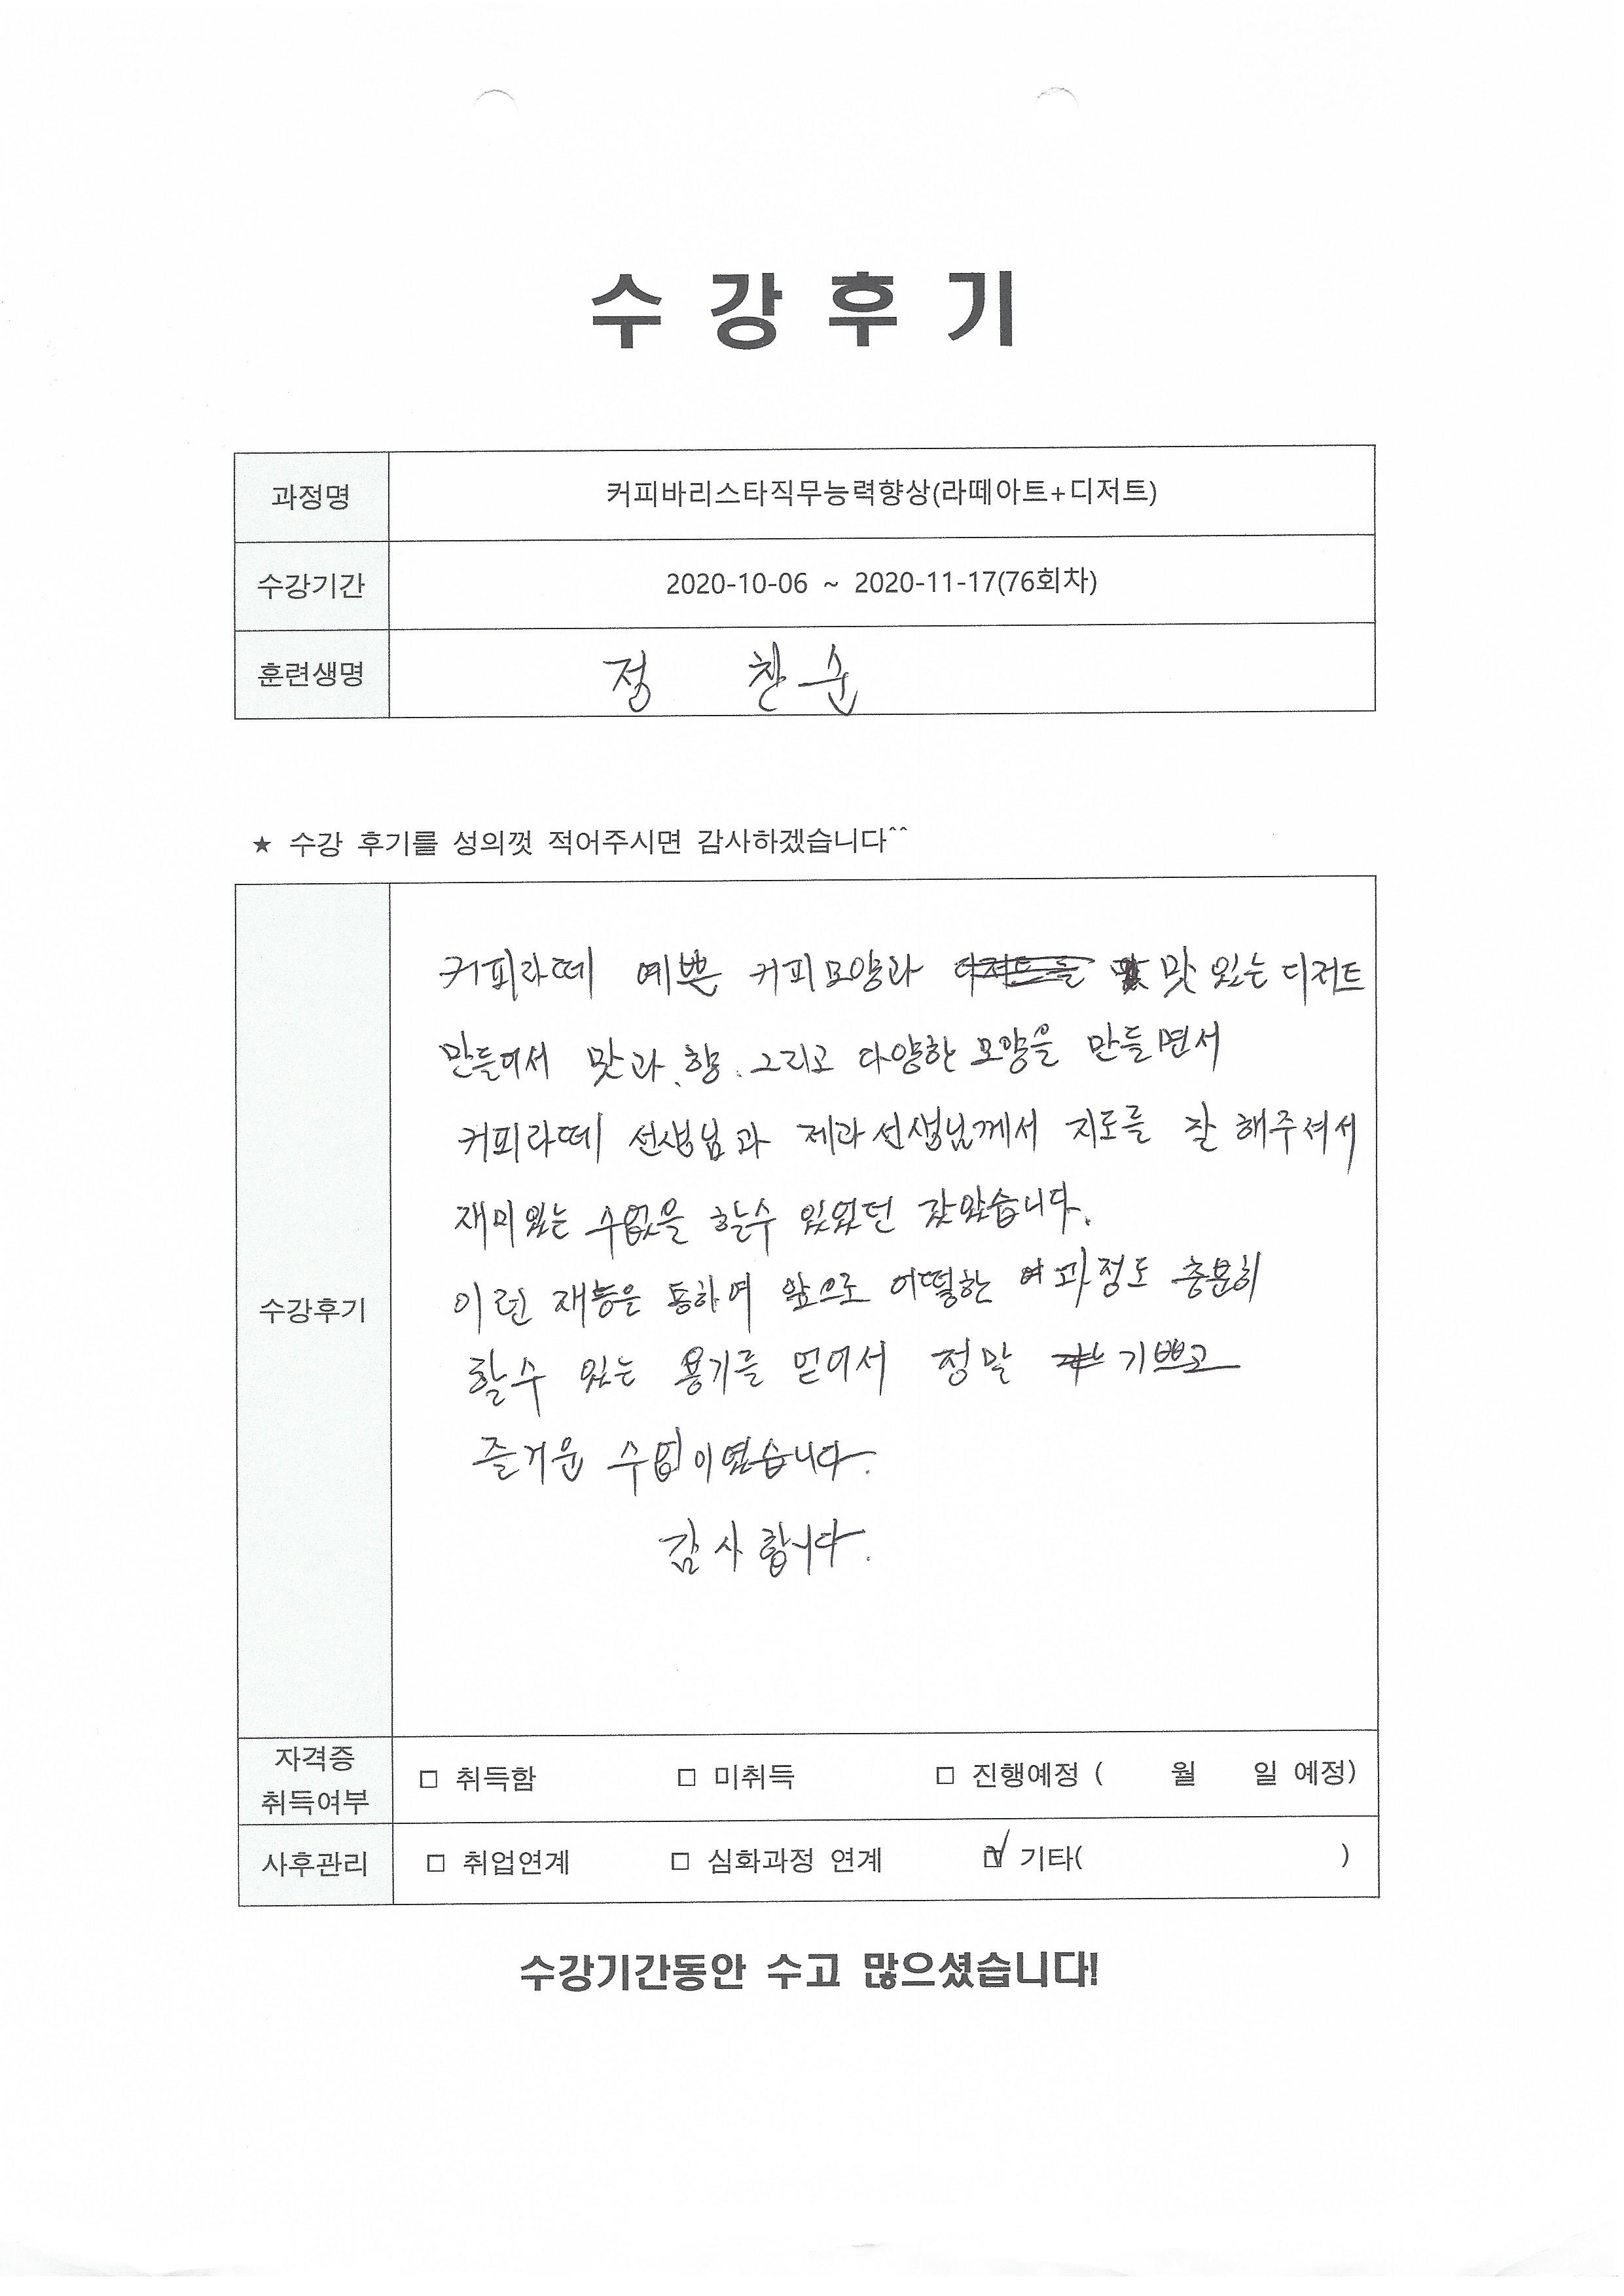 수 강 후 기
과정명 커피바리스타직무능력향상(라떼아트+디저트)
수강기간 2020-10-06 ~ 2020-11-17(76회차)
훈련생명 정 찬순
★ 수강 후기를 성의껏 적어주시면 감사하겠습니다^^
수강후기
커피라떼 예쁜 커피모양과 맛 있는 디저트
만들어서 맛과.향.그리고 다양한 모양을 만들면서
커피라떼 선생님과 제과선생님께서 지도를 잘 해주셔서
재미있는 수없을 할수 있었던 같았습니다.
이런 재능을 통하여 앞으로 어떻한 과정도 충분히
할수 있는 용기를 얻어서 정말 기쁘고
즐거운 수업이였습니다.
감사합니다.
자격증 취득여부 □ 취득함 □ 미취득 □ 진행예정 ( 월 일 예정)
사후관리 □ 취업연계 □ 심화과정 연계 ☑ 기타( )
수강기간동안 수고 많으셨습니다!